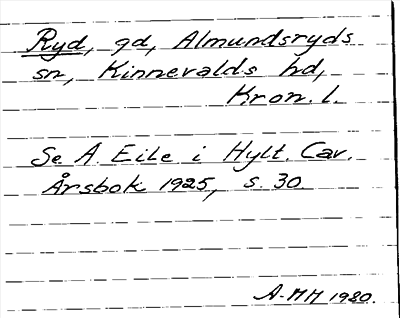 Ryd, gd, Almundsryds
sn, Kinnevalds hd,
Kron. l.
Se A. Eile i Hylt. Cav.
Årsbok 1925, s. 30.
A-MH 1980.